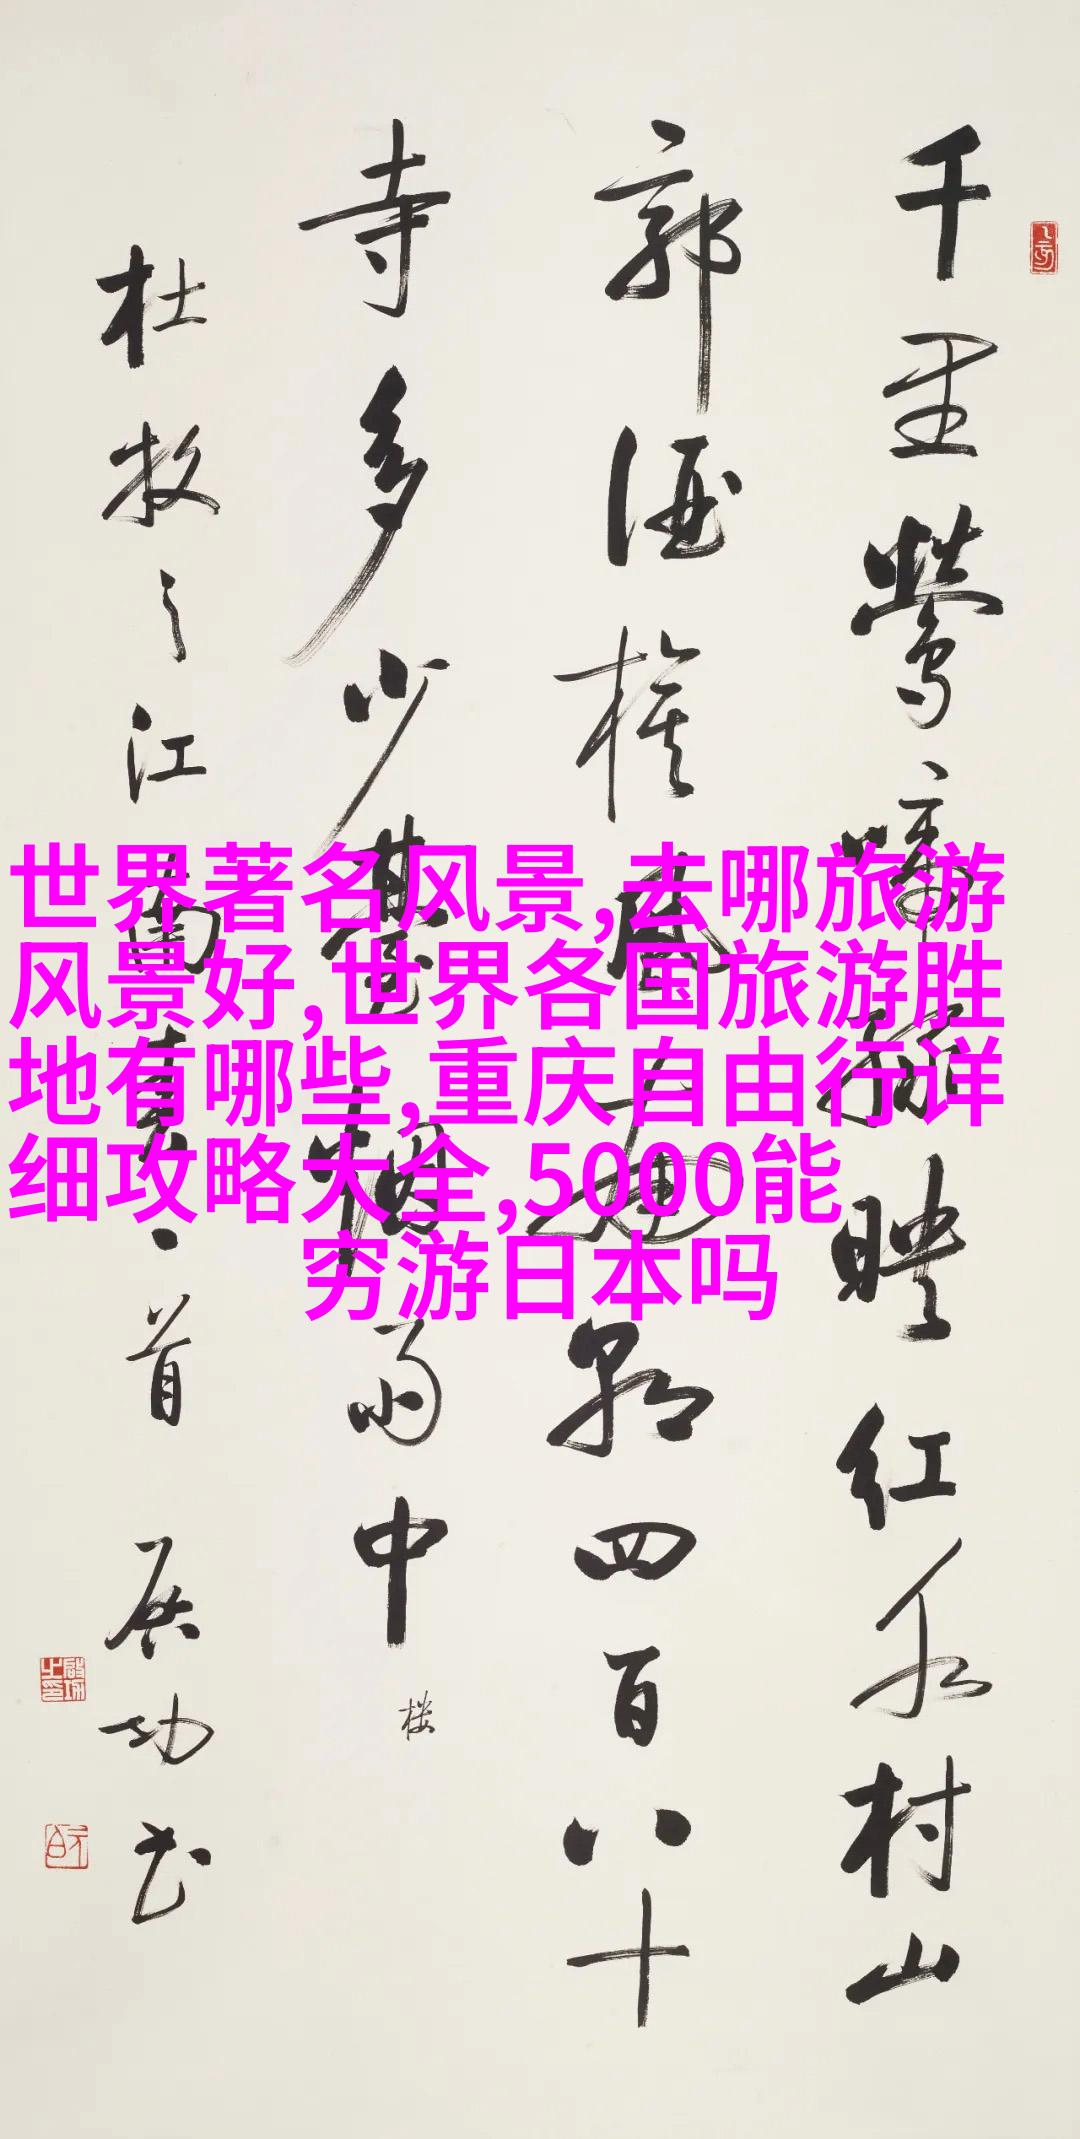 千里鶯啼緑映红水村山
郭酒旗風南朝四百八十
寺多少臺烟雨中 楼
杜牧之江南春一首 啟功书
世界著名风景,去哪旅游
风景好,世界各国旅游胜
地有哪些,重庆自由行详
细攻略大全,5000能
穷游日本吗